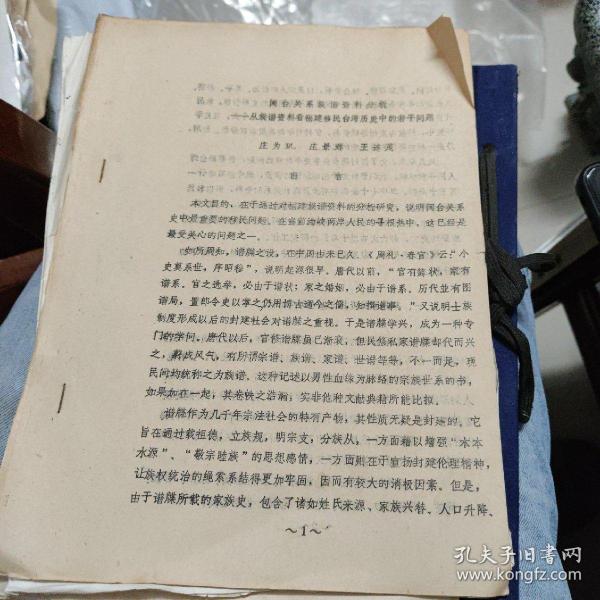 闽台关系族谱资料分析
——从族谱资料看福建移民台湾历史中的若干问题
庄为玑 庄景辉 王连茂
前言
本文目的，在于通过对福建族谱资料的分析研究，说明闽台关系
史中最重要的移民问题。在当前海峡两岸人民的寻根热中，这已经是
最受关心的问题之一。
如所周知，谱牒之设，在中国由来已久，《周礼·春官》云：“小
史奠系世，序昭穆”，说明起源很早。唐代以前，“官有簿状，家有
谱系。官之选举，必由于谱状；家之婚姻，必由于谱系。历代並有图
谱局，置郎令史以掌之，仍用博古通今之儒，知撰谱事。”又说明士族
制度形成以后的封建社会对谱牒之重视。于是谱牒学兴，成为一种专
门的学问。唐代以后，官修谱牒虽已渐衰，但民修私家谱牒却代而兴
之，蔚成风气，有所谓宗谱、族谱、家谱、世谱等等，不一而足，现
民间均统称之为族谱。这种记述以男性血缘为脉络的宗族世系的书，
如果加在一起，其卷帙之浩瀚，实非他种文献典籍所能比拟。
谱牒作为几千年宗法社会的特有产物，其性质无疑是封建的。它
旨在通过载祖德，立族规，明宗支，分族从，一方面藉以增强“水本
水源”、“敬宗睦族”的思想感情，一方面则在于宣扬封建伦理精神，
让族权统治的绳索系结得更加牢固，因而有较大的消极因素。但是，
由于谱牒所载的家族史，包含了诸如姓氏来源、家族兴替、人口升降、
～1～
孔夫子旧书网
www.kongfz.com